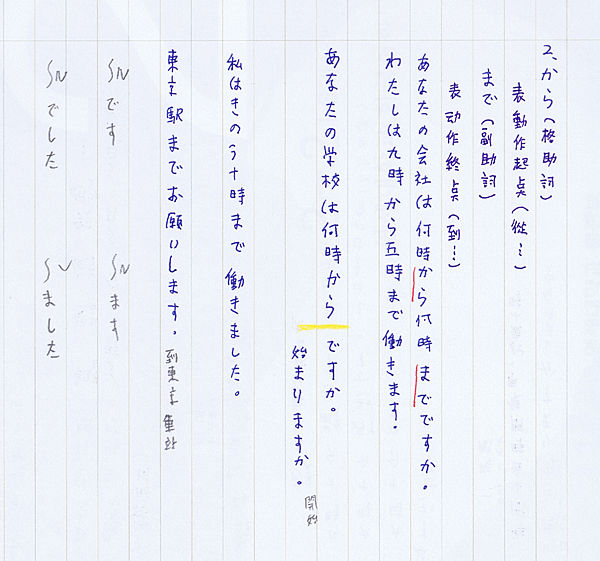 2、から(格助詞)
表動作起点(從…)
まで(副助詞)
表动作終点(到…)
あなたの会社は何時から何時までですか。
わたしは九時から五時まで働きます。
あなたの学校は何時からですか。
始まりますか。開始
私はきのう十時まで働きました。
東京駅までお願いします。到東京車站
です
ます
でした
ました